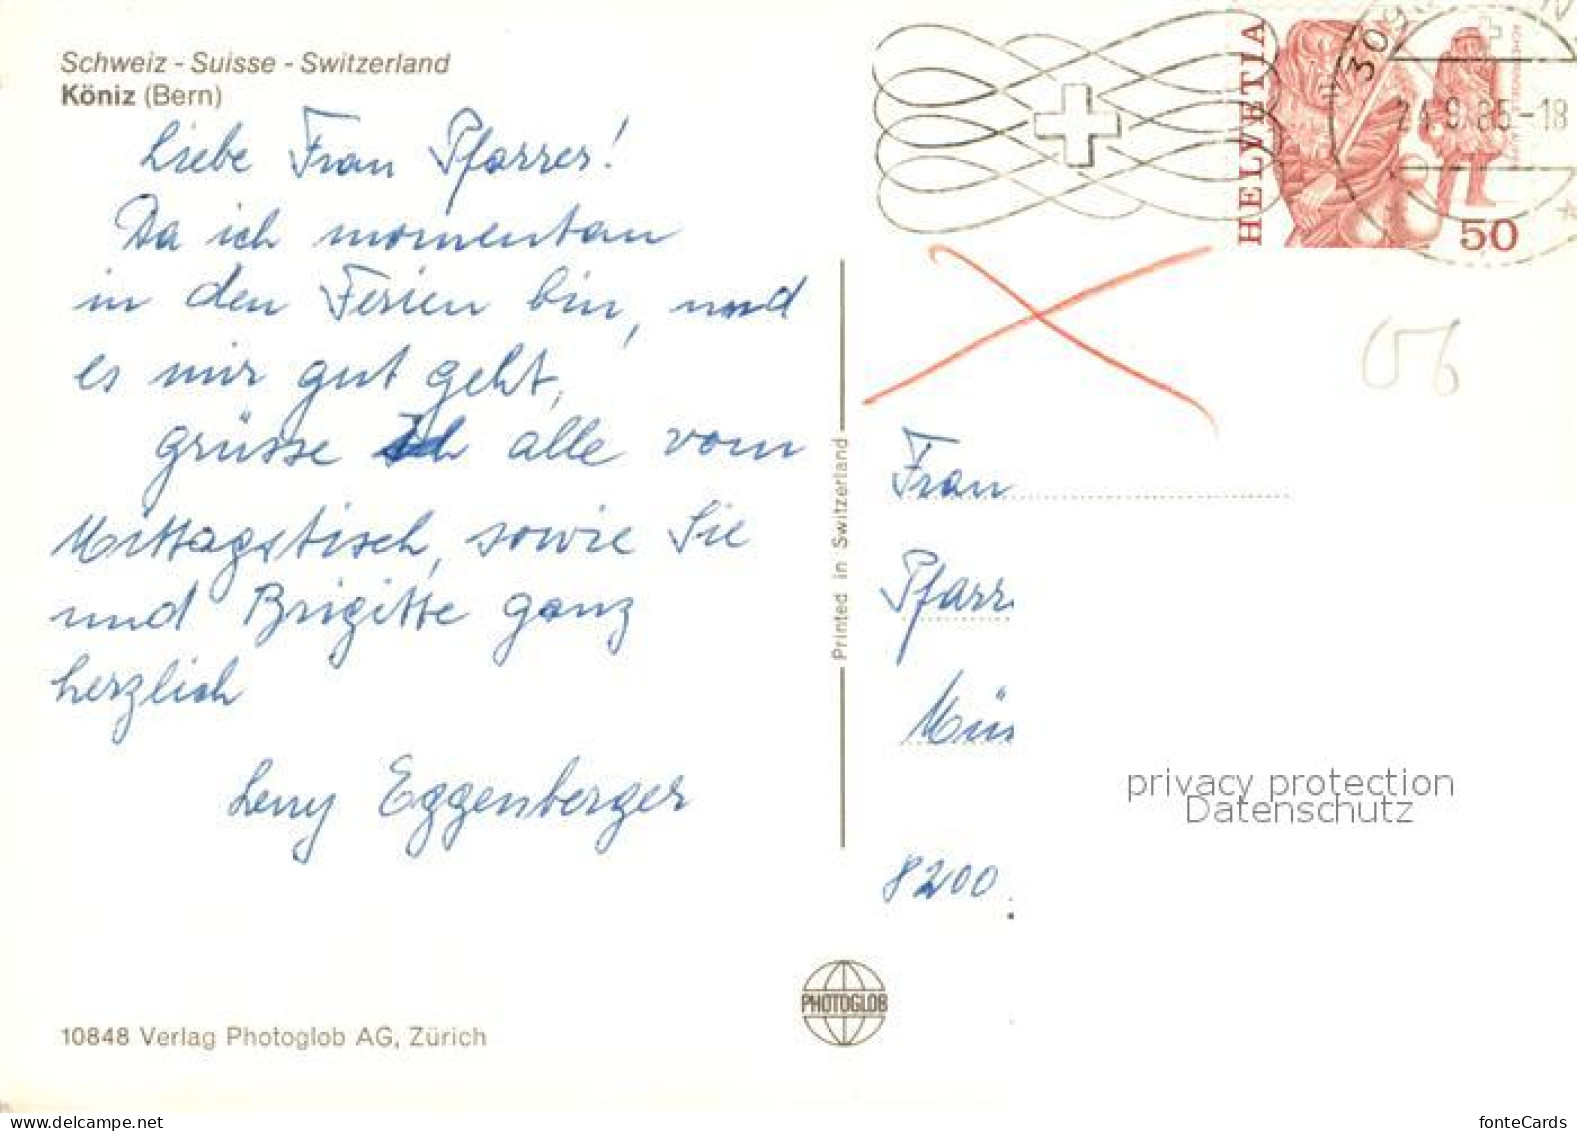 Schweiz - Suisse - Switzerland
Köniz (Bern)
Liebe Frau Pfarrer!
Da ich momentan
in den Ferien bin, und
es mir gut geht,
grüsse ich alle vom
Mittagstisch, sowie Sie
und Brigitte ganz
herzlich
Leny Eggenberger
10848 Verlag Photoglob AG, Zürich
Printed in Switzerland
PHOTOGLOB
HELVETIA
50
24.9.85-18
Frau
Pfarr
Mün
8200
privacy protection
Datenschutz
fonteCards